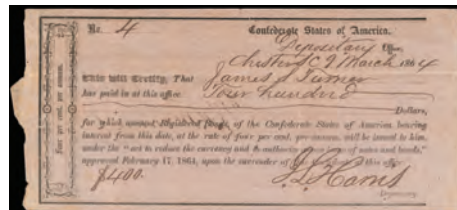 No. 4 Confederate States of America.
Depositary Office,
Chester S C 9 March 1864
This will Certify, That James
has paid in at this office Four hundred
Dollars,
for which amount Registered Bonds, of the Confederate States of America, bearing
interest from this date, at the rate of four per cent. per annum, will be issued to him,
under the "act to reduce the currency and to authorize a new issue of notes and bonds,"
approved February 17, 1864, upon the surrender of this Certificate at this office.
$400.
Depositary.
Four per cent. per annum.